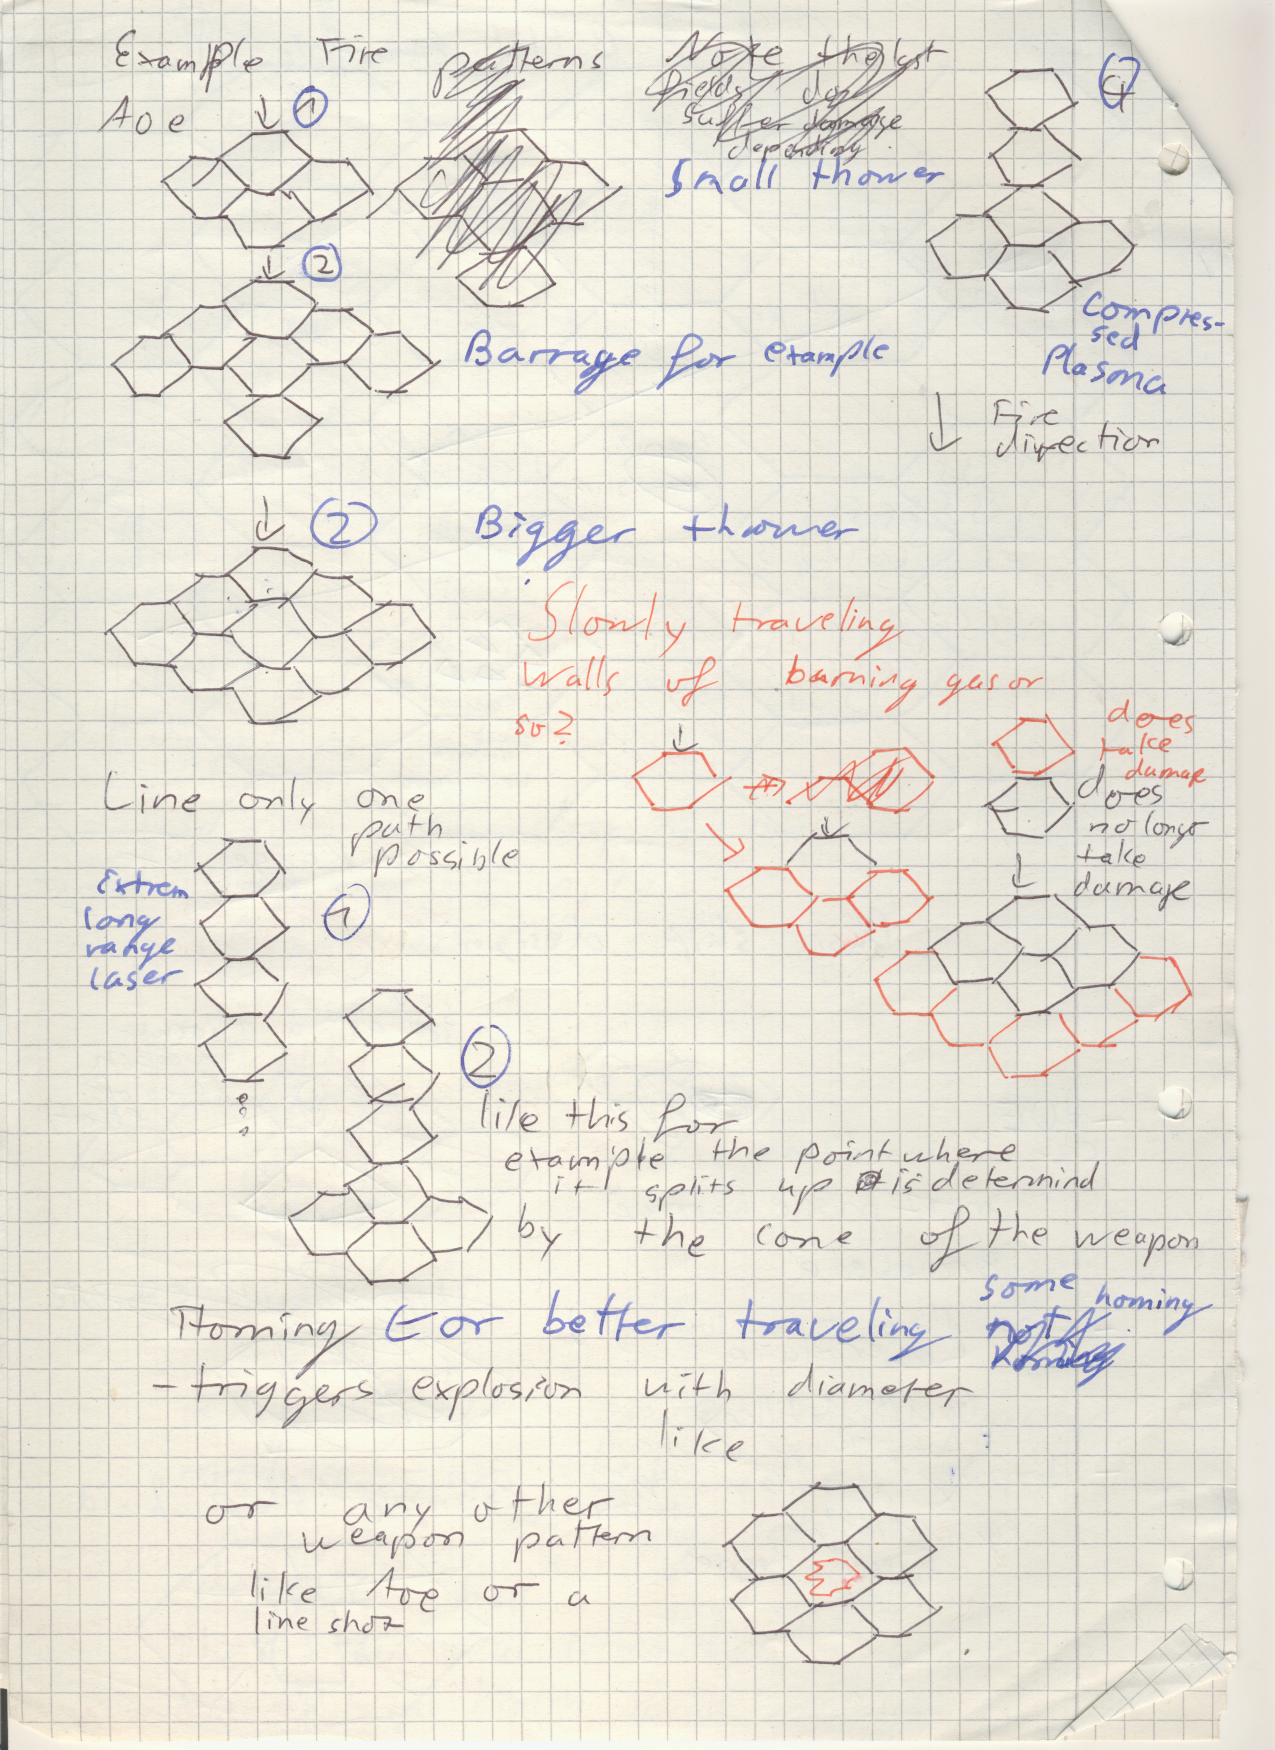 Example Fire patterns
Note the last
fields don
suffer damage
depending
4
Aoe
1
Small thower
2
Barrage for example
Compres-
sed
Plasma
Fire
direction
2
Bigger thower
Slowly traveling
walls of burning gas or
so?
does
take
damage
does
no longer
take
damage
Line only one
path
possible
Extrem
long
range
laser
1
2
like this for
example the point where
it splits up is determind
by the cone of the weapon
Homing Eor better traveling
some homing
not
homing
- triggers explosion with diameter
like
or any other
weapon pattern
like Aoe or a
line shot